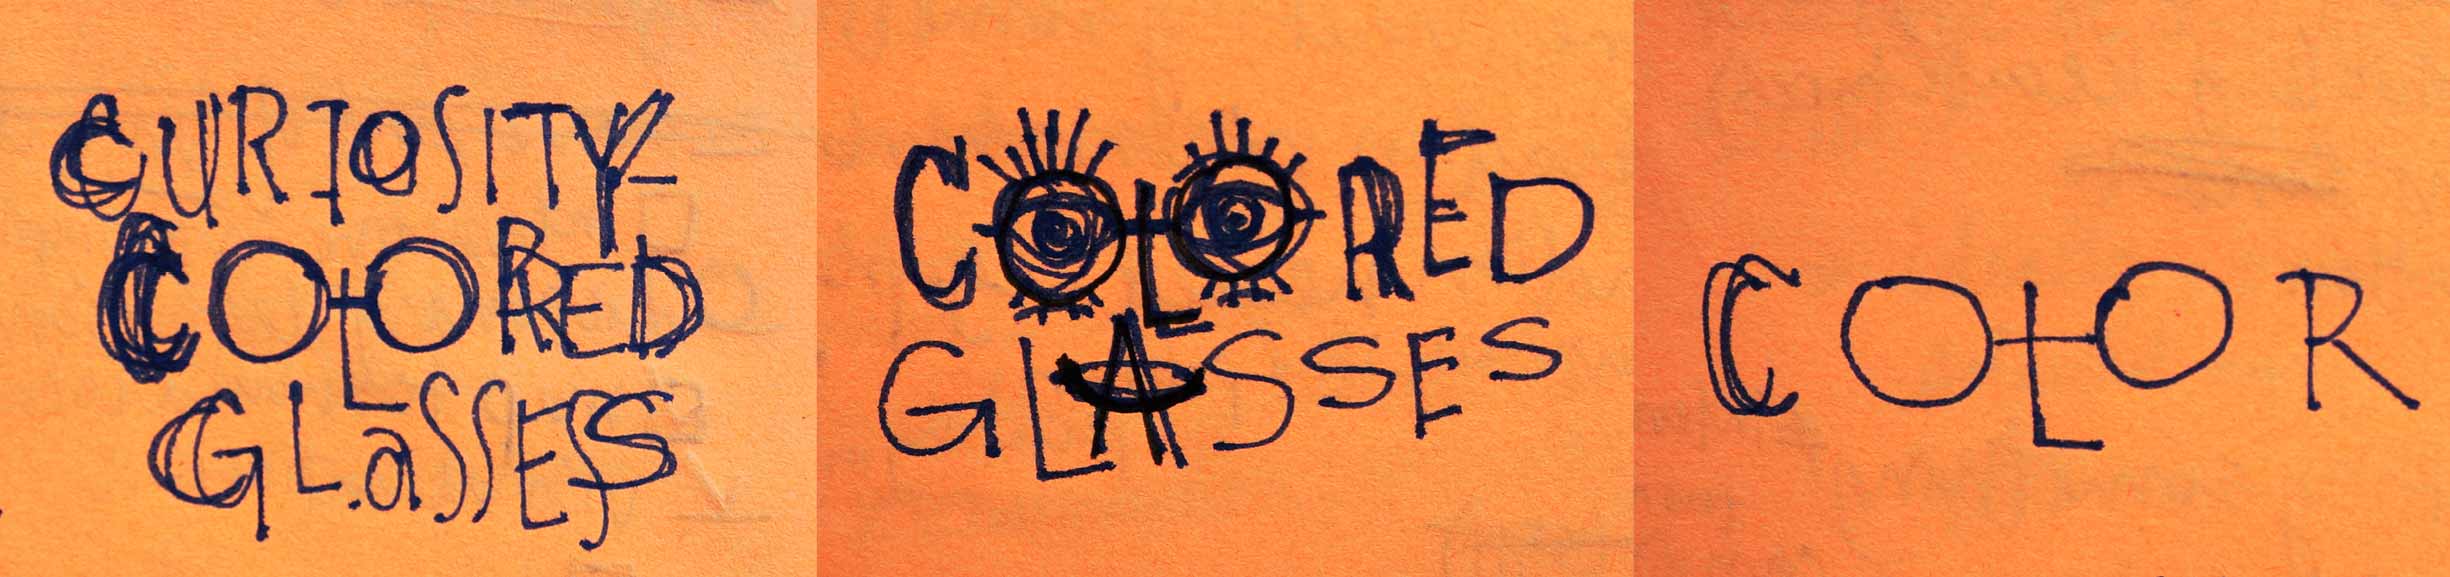 CURIOSITY-
COLORED
GLaSSES
COLORED
GLASSES
COLOR